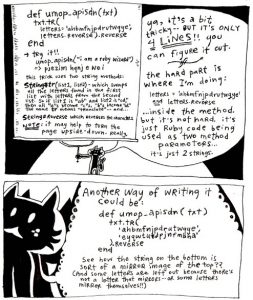 def umop_apisdn(txt)
txt.tr(
letters.reverse).reverse
end
* try it!!
umop_apisdn("i am a ruby wizard")
This trick uses two string methods:
String#tr(list1, list2) which swaps
all the letters found in the first
list with letters from the second
list. So if list1 is "ab" and list2 is "cd"
String#reverse which reverses the characters
NOTE: it may help to turn the
page upside-down. really
ya, it's a bit
tricky -- BUT it's ONLY
4 LINES!! you
can figure it out.
the hard part is
where I'm doing:
letters.reverse
...inside the method.
but it's not hard. it's
just Ruby code being
used as two method
parameters...
it's just 2 strings.
Another way of writing it
could be:
def umop_apisdn(txt)
txt.tr(
).reverse
end
See how the string on the bottom is
sort of a mirror image of the top??
(And some letters are left out because there's
not a letter that mirrors -- or some letters
mirror themselves!!)